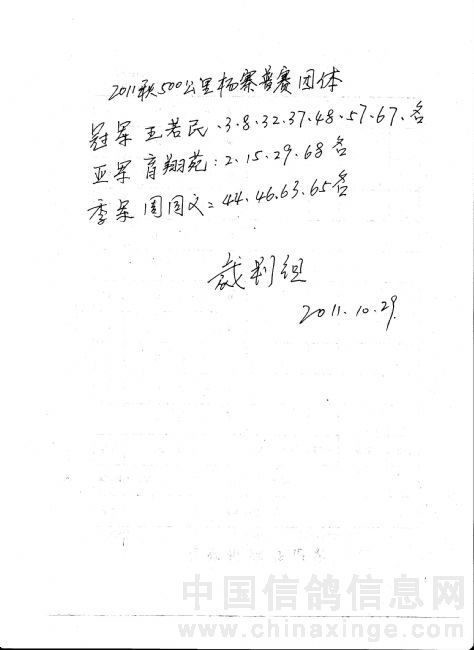 2011秋500公里杨寨普赛团体
冠军 王若民、3、8、32、37、48、57、67、名
亚军 育翔苑：2、15、29、68名
季军 周国文：44、46、63、65名
裁判组
2011.10.29.
中国信鸽信息网
www.chinaxinge.com